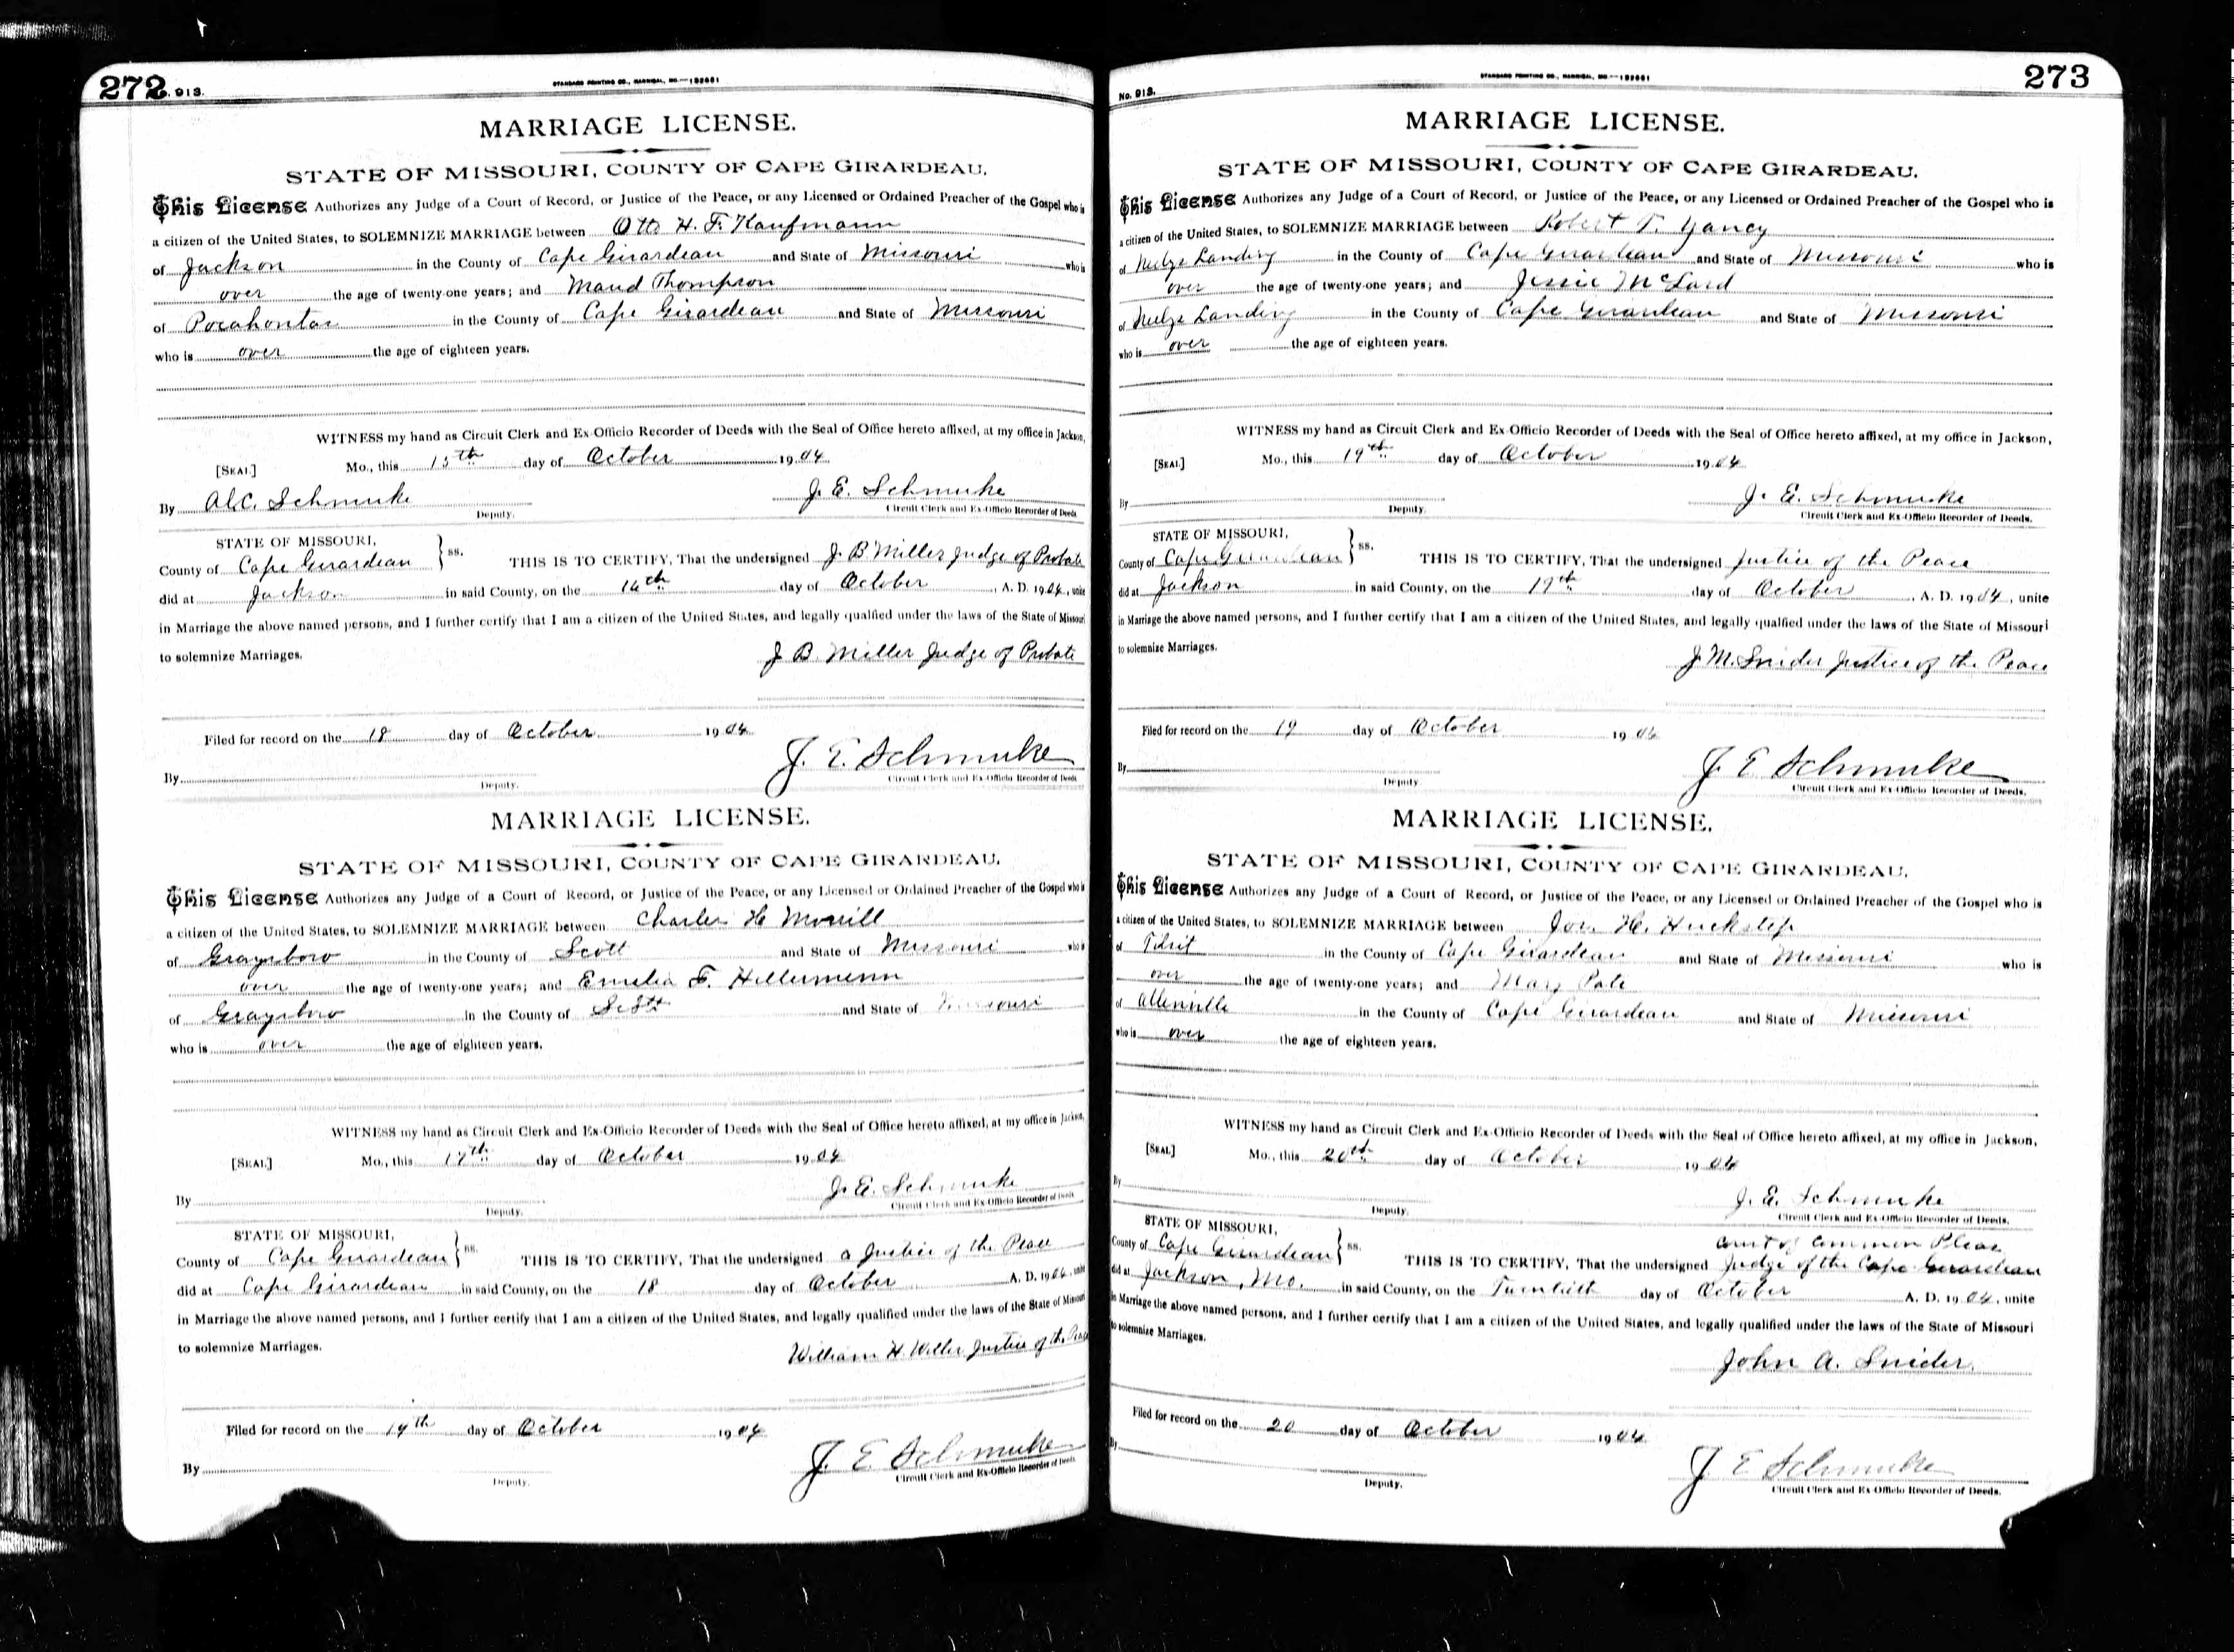 272 . 913. STANDARD PRINTING CO., HANNIBAL, MO.
MARRIAGE LICENSE.
STATE OF MISSOURI, COUNTY OF CAPE GIRARDEAU.
This License Authorizes any Judge of a Court of Record, or Justice of the Peace, or any Licensed or Ordained Preacher of the Gospel who is
a citizen of the United States, to SOLEMNIZE MARRIAGE between Otto H. F. Kaufmann
of Jackson in the County of Cape Girardeau and State of Missouri who is
over the age of twenty-one years; and Maud Thompson
of Pocahontas in the County of Cape Girardeau and State of Missouri
who is over the age of eighteen years.
WITNESS my hand as Circuit Clerk and Ex-Officio Recorder of Deeds with the Seal of Office hereto affixed, at my office in Jackson,
[SEAL] Mo., this 15th day of October 1904
By Schmuke J. E. Schmuke
Deputy. Circuit Clerk and Ex-Officio Recorder of Deeds
STATE OF MISSOURI,
County of Cape Girardeau } ss. THIS IS TO CERTIFY, That the undersigned J. B Miller Judge of Probate
did at Jackson in said County, on the 16th day of October A. D. 1904, unite
in Marriage the above named persons, and I further certify that I am a citizen of the United States, and legally qualified under the laws of the State of Missouri
to solemnize Marriages. J B. Miller Judge of Probate
Filed for record on the 18 day of October 1904
By J. E. Schmuke
Deputy. Circuit Clerk and Ex-Officio Recorder of Deeds
MARRIAGE LICENSE.
STATE OF MISSOURI, COUNTY OF CAPE GIRARDEAU.
This License Authorizes any Judge of a Court of Record, or Justice of the Peace, or any Licensed or Ordained Preacher of the Gospel who is
a citizen of the United States, to SOLEMNIZE MARRIAGE between Charles H Morrill
of Graysboro in the County of Scott and State of Missouri who is
over the age of twenty-one years; and Emelia F. Hellermann
of Graysboro in the County of Scott and State of Missouri
who is over the age of eighteen years.
WITNESS my hand as Circuit Clerk and Ex-Officio Recorder of Deeds with the Seal of Office hereto affixed, at my office in Jackson,
[SEAL] Mo., this 17th day of October 1904
By J. E. Schmuke
Deputy. Circuit Clerk and Ex-Officio Recorder of Deeds
STATE OF MISSOURI,
County of Cape Girardeau } ss. THIS IS TO CERTIFY, That the undersigned a Justice of the Peace
did at Cape Girardeau in said County, on the 18 day of October A. D. 1904, unite
in Marriage the above named persons, and I further certify that I am a citizen of the United States, and legally qualified under the laws of the State of Missouri
to solemnize Marriages. William H. Willer Justice of the Peace
Filed for record on the 19th day of October 1904
By J. E Schmuke
Deputy. Circuit Clerk and Ex-Officio Recorder of Deeds
No. 913. STANDARD PRINTING CO., HANNIBAL, MO. 273
MARRIAGE LICENSE.
STATE OF MISSOURI, COUNTY OF CAPE GIRARDEAU.
This License Authorizes any Judge of a Court of Record, or Justice of the Peace, or any Licensed or Ordained Preacher of the Gospel who is
a citizen of the United States, to SOLEMNIZE MARRIAGE between Robert T. Yancy
of Neelys Landing in the County of Cape Girardeau and State of Missouri who is
over the age of twenty-one years; and Jessie McLard
of Neelys Landing in the County of Cape Girardeau and State of Missouri
who is over the age of eighteen years.
WITNESS my hand as Circuit Clerk and Ex-Officio Recorder of Deeds with the Seal of Office hereto affixed, at my office in Jackson,
[SEAL] Mo., this 19th day of October 1904
By J. E. Schmuke
Deputy. Circuit Clerk and Ex-Officio Recorder of Deeds.
STATE OF MISSOURI,
County of Cape Girardeau } ss. THIS IS TO CERTIFY, That the undersigned Justice of the Peace
did at Jackson in said County, on the 19th day of October A. D. 1904, unite
in Marriage the above named persons, and I further certify that I am a citizen of the United States, and legally qualfied under the laws of the State of Missouri
to solemnize Marriages. J. M. Snider Justice of the Peace
Filed for record on the 19 day of October 1904
By J. E Schmuke
Deputy Circuit Clerk and Ex-Officio Recorder of Deeds.
MARRIAGE LICENSE.
STATE OF MISSOURI, COUNTY OF CAPE GIRARDEAU.
This License Authorizes any Judge of a Court of Record, or Justice of the Peace, or any Licensed or Ordained Preacher of the Gospel who is
a citizen of the United States, to SOLEMNIZE MARRIAGE between Jon. H. Huckstep
of Tilsit in the County of Cape Girardeau and State of Missouri who is
over the age of twenty-one years; and Mary Pate
of Allenville in the County of Cape Girardeau and State of Missouri
who is over the age of eighteen years.
WITNESS my hand as Circuit Clerk and Ex-Officio Recorder of Deeds with the Seal of Office hereto affixed, at my office in Jackson,
[SEAL] Mo., this 20th day of October 1904
By J. E. Schmuke
Deputy. Circuit Clerk and Ex-Officio Recorder of Deeds.
STATE OF MISSOURI, Court of Common Pleas
County of Cape Girardeau } ss. THIS IS TO CERTIFY, That the undersigned Judge of the Cape Girardeau
did at Jackson, Mo. in said County, on the Twentieth day of October A. D. 1904, unite
in Marriage the above named persons, and I further certify that I am a citizen of the United States, and legally qualified under the laws of the State of Missouri
to solemnize Marriages. John A. Snider.
Filed for record on the 20 day of October 1904
By J. E Schmuke
Deputy. Circuit Clerk and Ex-Officio Recorder of Deeds.